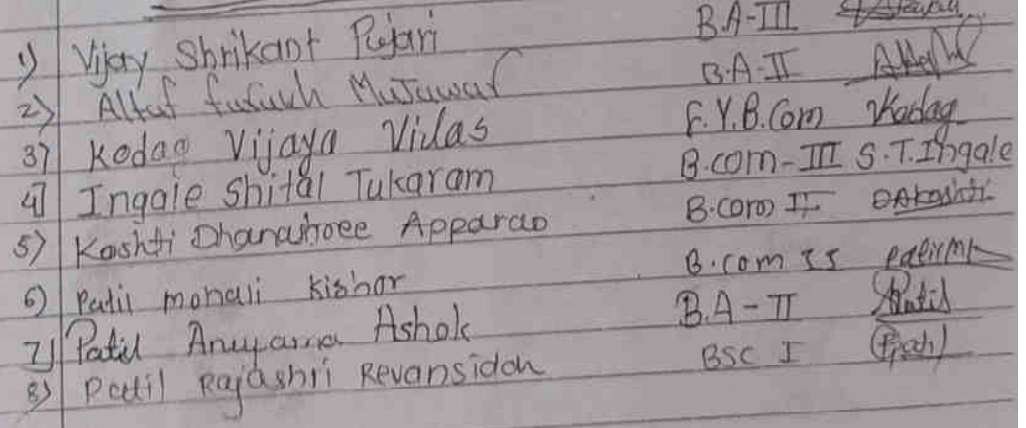 1) Vijay Shrikant Pujari B.A-III
2) Altaf Mujawar B.A-II
3) Kodag Vijaya Vilas F.Y.B.Com Kodag
4) Ingale Shital Tukaram B.com-III S.T.Ingale
5) Koshti Dhanashree Apparao B.com II
6) Patil monali kishor B.com II
7) Patil Anupama Ashok B.A-II Patil
8) Patil Rajashri Revansiddh BSC I